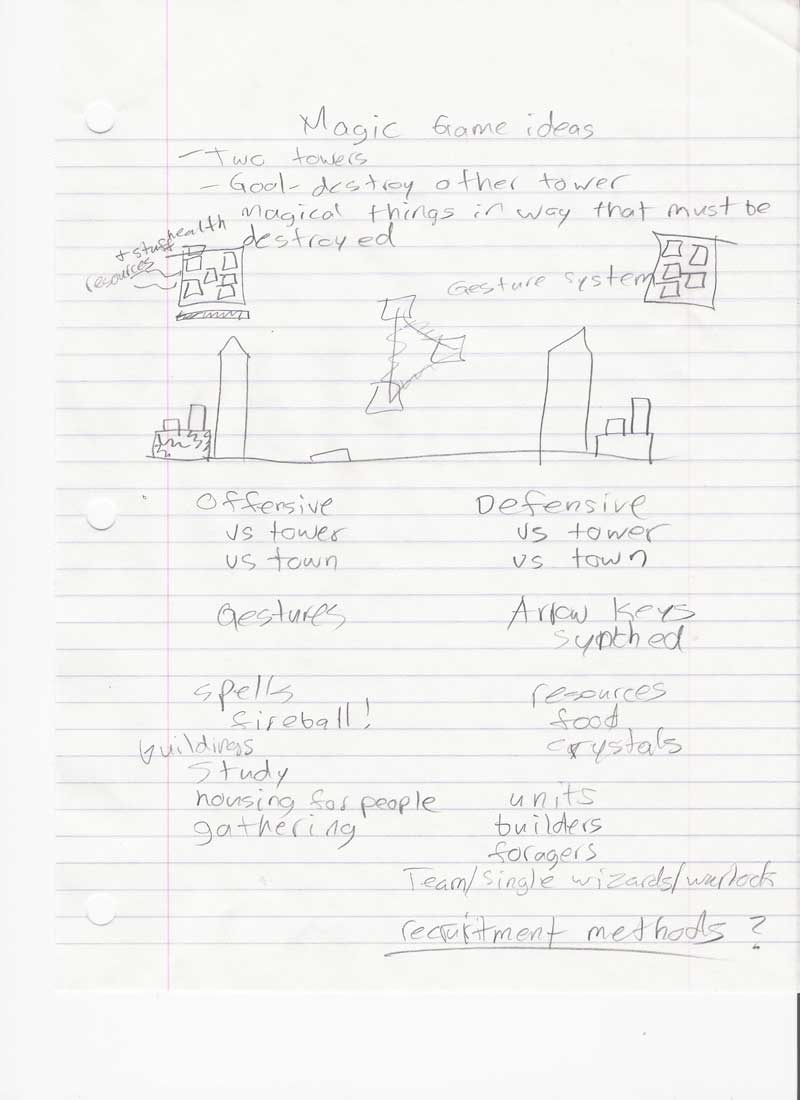 Magic Game ideas
- Two towers
- Goal - destroy other tower
magical things in way that must be
destroyed
health
+ stuff
resources
Gesture system
Offensive
vs tower
vs town
Defensive
vs tower
vs town
Gestures
Arrow Keys
synthed
spells
fireball!
buildings
Study
housing for people
gathering
resources
food
crystals
units
builders
foragers
Team/single wizards/warlock
recruitment methods ?